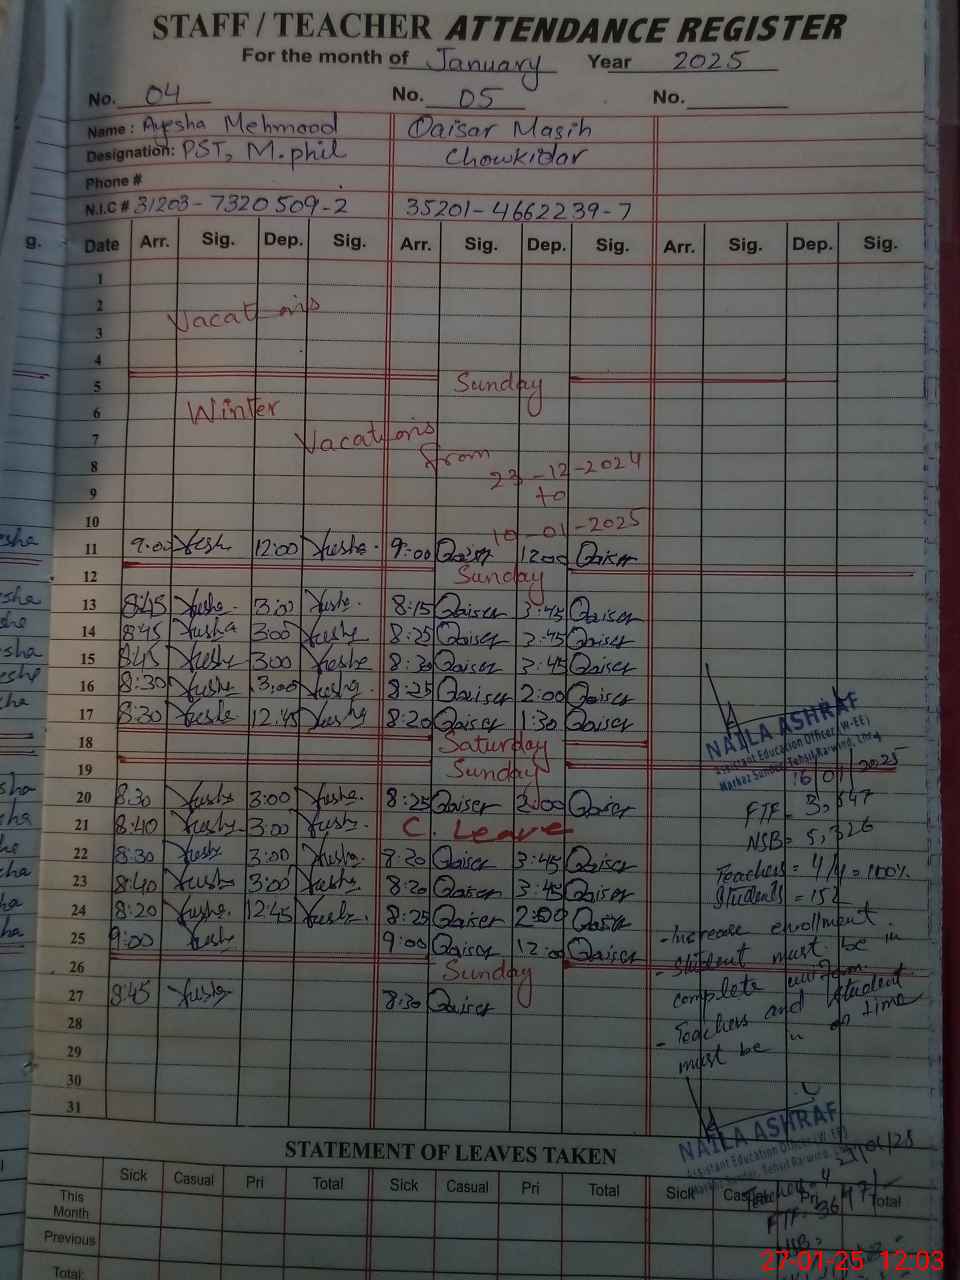 STAFF / TEACHER ATTENDANCE REGISTER
For the month of January Year 2025
No. 04 No. 05 No.
Name : Ayesha Mehmood Qaisar Masih
Designation: PST, M.phil Chowkidar
Phone #
N.I.C # 31203-7320509-2 35201-4662239-7
Date Arr. Sig. Dep. Sig. Arr. Sig. Dep. Sig. Arr. Sig. Dep. Sig.
1
2 Vacations
3
4
5 Sunday
6 Winter
7 Vacations
8 from 23-12-2024
9 to
10 10-01-2025
11 9:00 12:00 9:00 Qaiser 12:00 Qaiser
12 Sunday
13 8:45 3:00 8:15 Qaiser 3:45 Qaiser
14 8:45 3:00 8:25 Qaiser 3:45 Qaiser
15 8:45 3:00 8:30 Qaiser 3:45 Qaiser
16 8:30 3:00 8:25 Qaiser 2:00 Qaiser
17 8:30 12:45 8:20 Qaiser 1:30 Qaiser
18 Saturday
19 Sunday
20 8:30 3:00 8:25 Qaiser 2:00 Qaiser
21 8:40 3:00 C. Leave
22 8:30 3:00 8:20 Qaiser 3:45 Qaiser
23 8:40 3:00 8:20 Qaiser 3:45 Qaiser
24 8:20 12:45 8:25 Qaiser 2:00 Qaiser
25 9:00 9:00 Qaiser 12:00 Qaiser
26 Sunday
27 8:45 8:30 Qaiser
28
29
30
31
NAILA ASHRAF
Assistant Education Officer (W-EE)
Markaz Sundar, Tehsil Raiwind, Lhr
16/01/2025
FTF = 3,547
NSB = 5,326
Teachers = 4/4 = 100%
Students = 152
- Increase enrollment
- Student must be in
complete uniform
- Teachers and student
must be in on time
NAILA ASHRAF
Assistant Education Officer (W-EE)
Markaz Sundar, Tehsil Raiwind,
STATEMENT OF LEAVES TAKEN
Sick Casual Pri Total Sick Casual Pri Total Sick Casual Pri Total
This
Month
Previous
Total:
FTF=
NSB=
27-01-25 12:03